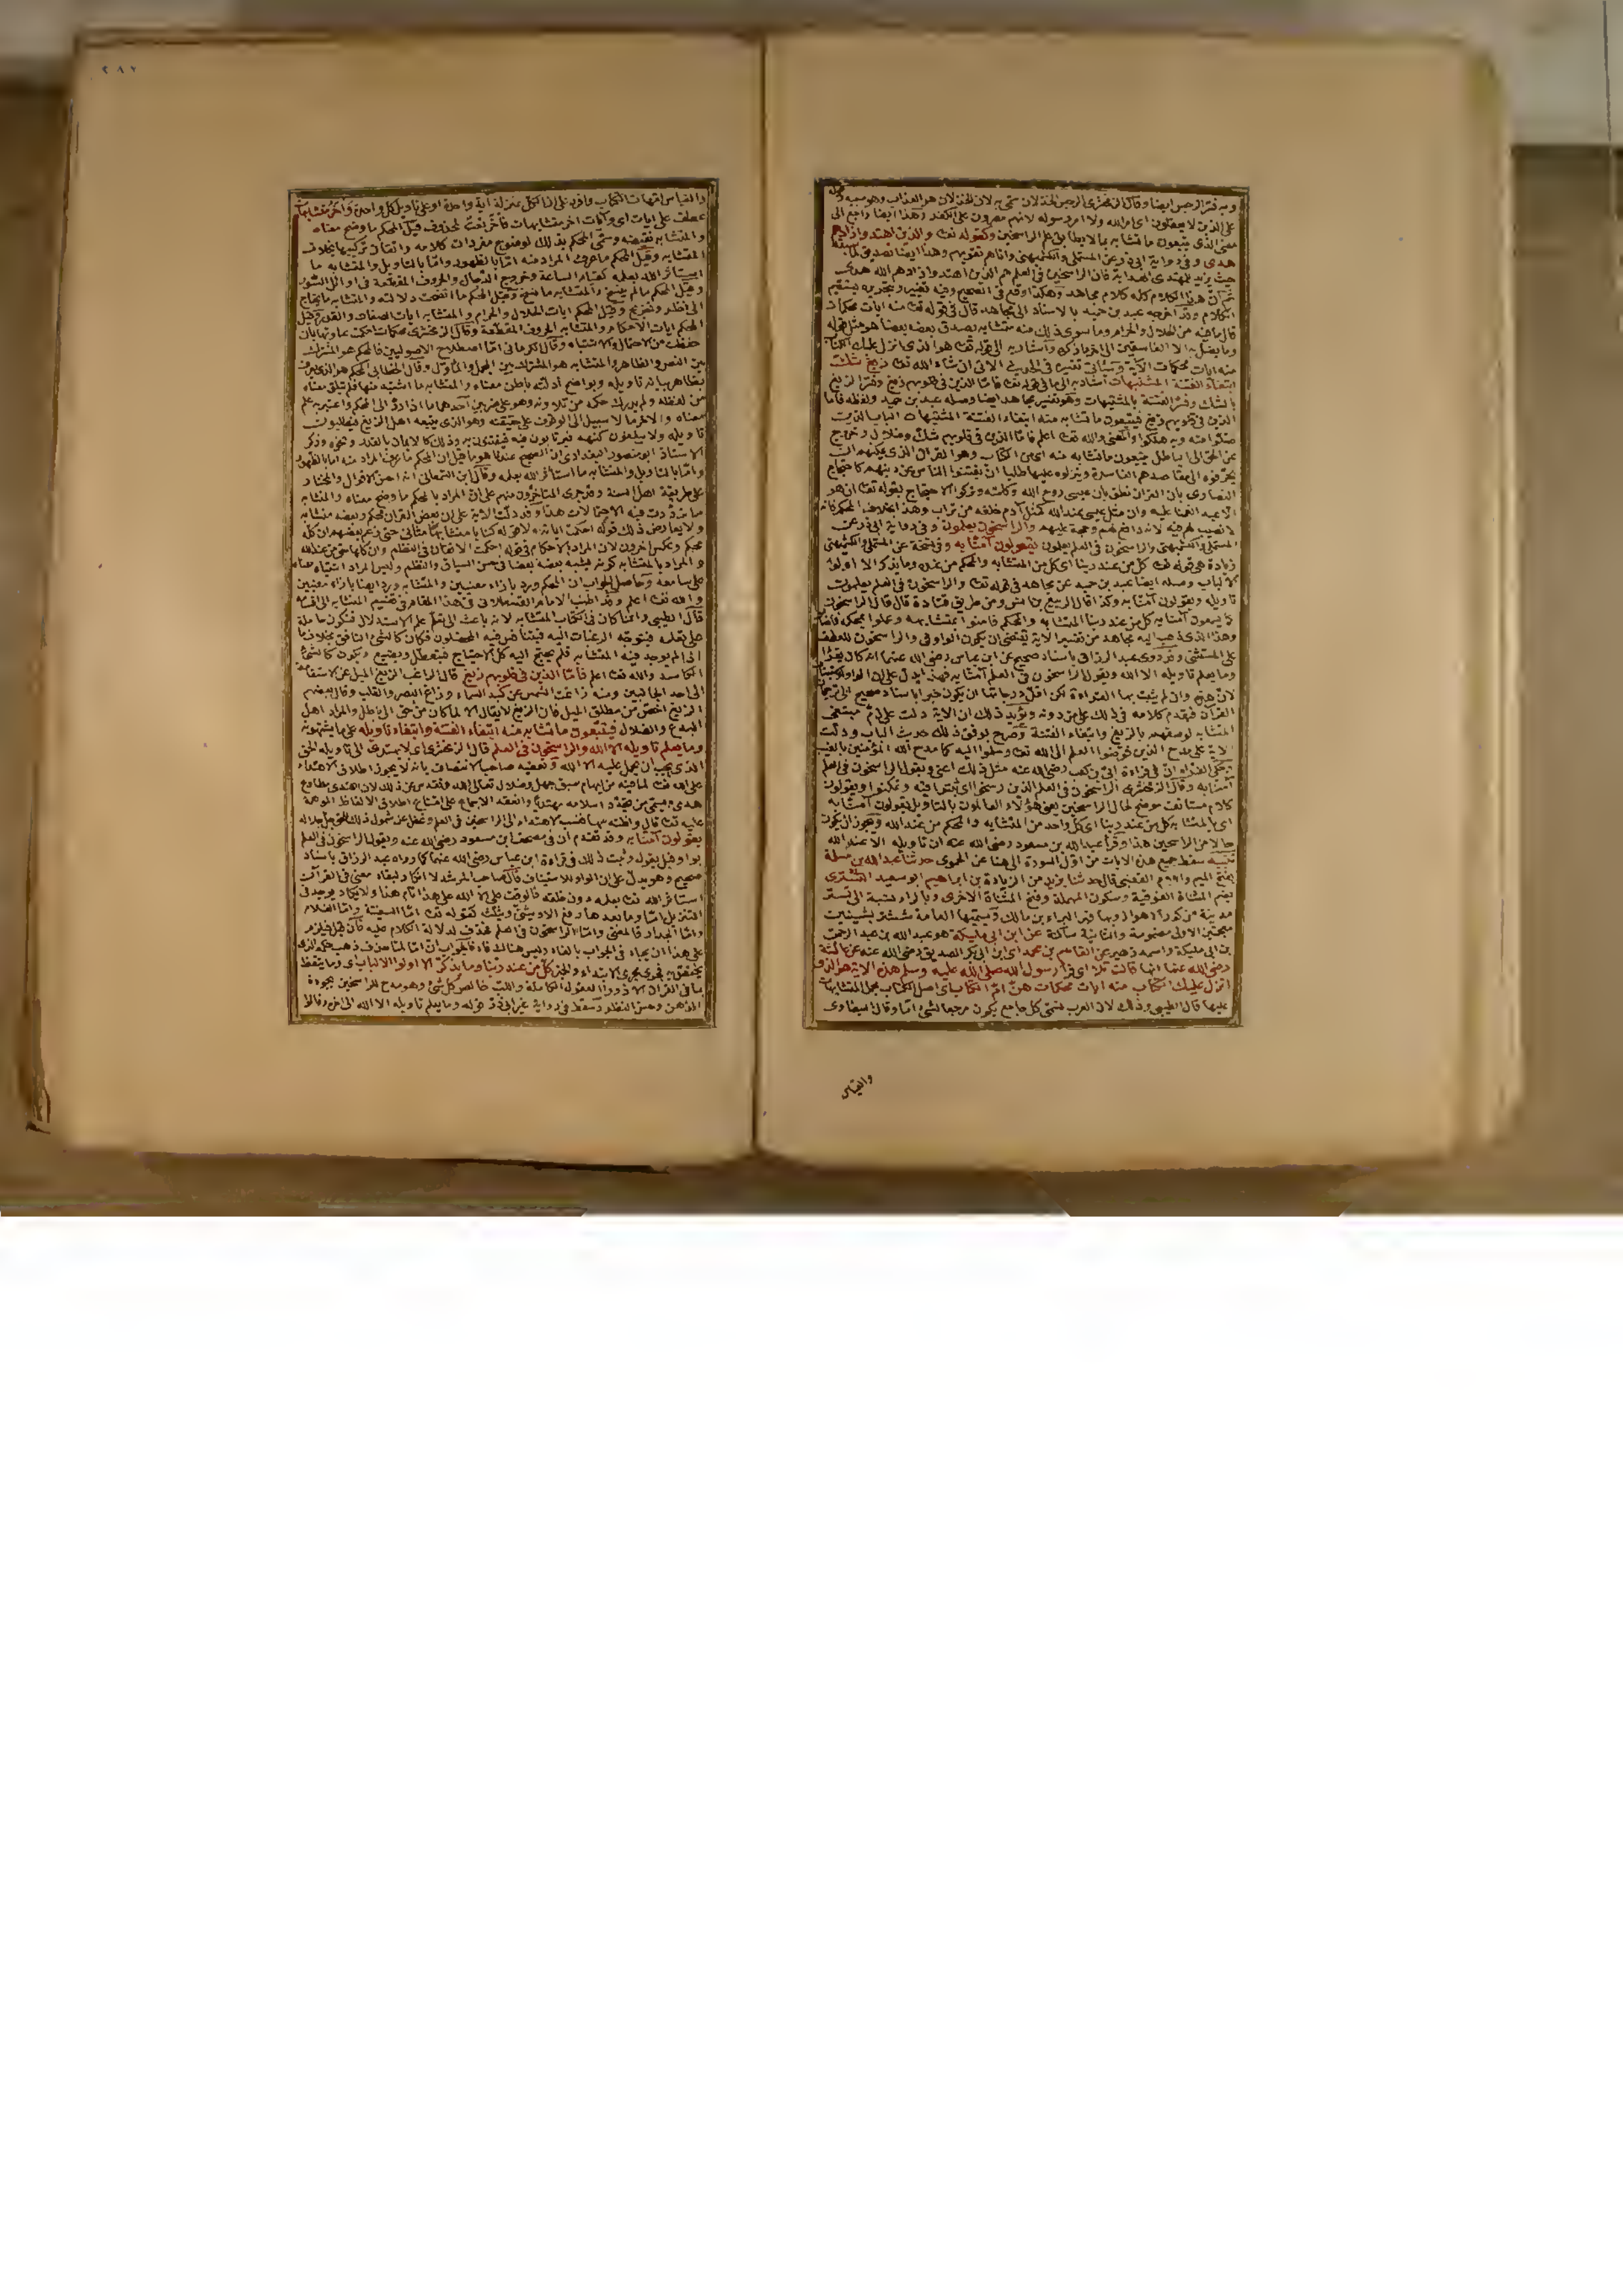 وبه فسر الرجس ايضا وقال الزمخشري الرجس الخذلان سمى به لان الخذلان هو العذاب وهو سببه
على الذين لا يعقلون اى امر الله ولا امر رسوله لانهم مصرون على الكفر وهذا ايضا راجع الى
معنى الذى يتبعون ما تشابه بما لا يطابق علم الراسخين وكقوله تعالى والذين اهتدوا زادهم
هدى وفى رواية ابى ذر عن المستملى والكشميهنى واتاهم تقويهم وهذا ايضا تصديق لما
حيث يزيد للمهتدى الهداية فان الراسخين فى العلم هم الذين اهتدوا زادهم الله هدى
ثم ان هذا الكلام كله كلام مجاهد وهكذا وقع فى الصحيح وفيه تغيير وبتحريره يستقيم
الكلام وقد اخرجه عبد بن حميد بالاسناد الى مجاهد قال فى قوله تعالى منه ايات محكمات
قال ما فيه من الحلال والحرام وما سوى ذلك منه متشابه يصدق بعضه بعضا هو مثل قوله
وما يضل به الا الفاسقين الى اخر ما ذكره واشار به الى قوله تعالى هو الذى انزل عليك الكتاب
منه ايات محكمات الاية وسيأتى تفسيره فى الحديث الاتى ان شاء الله تعالى زيغ شك
ابتغاء الفتنة المشتبهات اشار به الى ما فى قوله تعالى فاما الذين فى قلوبهم زيغ وفسر الزيغ
بالشك وفسر الفتنة بالمشتبهات وهو تفسير مجاهد ايضا وصله عبد بن حميد ولفظه فاما
الذين فى قلوبهم زيغ فيتبعون ما تشابه منه ابتغاء الفتنة المشتبهات الباب الذى
ضلوا منه وبه هلكوا والمعنى والله تعالى اعلم فاما الذين فى قلوبهم شك وضلال وخروج
عن الحق الى الباطل يتبعون ما تشابه منه اى من الكتاب وهو القران الذى يمكنهم ان
يحرفوه الى مقاصدهم الفاسدة وينزلوه عليها طلبا ان يفتنوا الناس عن دينهم كاحتجاج
النصارى بان القران نطق بان عيسى روح الله وكلمته وتركوا الاحتجاج بقوله تعالى ان هو
الا عبد انعمنا عليه وان مثل عيسى عند الله كمثل آدم خلقه من تراب وهذا بخلاف المحكم فانه
لا نصيب لهم فيه لانه دافع لهم وحجة عليهم والراسخون يعلمون وفى رواية ابى ذر عن
المستملى والكشميهنى والراسخون فى العلم يعلمون يقولون آمنا به وفى نسخة عن المستملى والكشميهنى
زيادة هى قوله تعالى كل من عند ربنا اى كل من المتشابه والمحكم من عنده وما يذكر الا اولوا
الالباب وصله ايضا عبد بن حميد عن مجاهد فى قوله تعالى والراسخون فى العلم يعلمون
تاويله ويقولون آمنا به وكذا قال الربيع بن انس ومن طريق قتادة قال قال الراسخون
كما يسمعون آمنا به كل من عند ربنا المتشابه والمحكم فامنوا بمتشابهه وعملوا بمحكمه
وهذا الذى ذهب اليه مجاهد من تفسير الاية يقتضى ان يكون الواو فى والراسخون للعطف
على المستثنى وقد روى عبد الرزاق باسناد صحيح عن ابن عباس رضى الله عنهما انه كان يقرأ
وما يعلم تاويله الا الله ويقول الراسخون فى العلم آمنا به فهذا يدل على ان الواو للاستيناف
لان وان لم يثبت بها القراءة لكن اقل درجاتها ان يكون خبرا باسناد صحيح الى ترجمان
القران فيقدم كلامه فى ذلك على من دونه ويؤيد ذلك ان الاية دلت على ذم متبعى
المتشابه لوصفهم بالزيغ وابتغاء الفتنة وصرح بوفق ذلك حديث الباب ودلت
الاية على مدح الذين فوضوا العلم الى الله تعالى وسلموا اليه كما مدح الله المؤمنين بالغيب
وحكى الفراء ان فى قراءة ابى بن كعب رضى الله عنه مثل ذلك اعنى ويقول الراسخون فى العلم
آمنا به وقال الزمخشرى الراسخون فى العلم الذين رسخوا اى ثبتوا فيه وتمكنوا ويقولون
كلام مستانف موضح لحال الراسخين يعنى هؤلاء العالمون بالتاويل يقولون آمنا به
اى بالمتشابه كل من عند ربنا اى كل واحد من المتشابه والمحكم من عند الله ويجوز ان يكون
حالا من الراسخين هذا وقرأ عبد الله بن مسعود رضى الله عنه ان تاويله الا عند الله
تنبيه سقط جميع هذه الايات من اول السورة الى هنا عن الحموى حدثنا عبد الله بن مسلمة
بفتح الميم واللام القعنبى قال حدثنا يزيد من الزيادة بن ابراهيم ابو سعيد التسترى
بضم المثناة الفوقية وسكون المهملة وفتح المثناة الاخرى وبالراء نسبة الى تستر
مدينة من كور الاهواز وبها قبر البراء بن مالك وتسميها العامة ششتر بشينين
معجمتين الاولى مضمومة والثانية ساكنة عن ابن ابى مليكة هو عبد الله بن عبد الرحمن
بن ابى مليكة واسمه زهير عن القاسم بن محمد اى ابن ابى بكر الصديق رضى الله عنه عن عائشة
رضى الله عنها انها قالت تلا اى قرأ رسول الله صلى الله عليه وسلم هذه الاية هو الذى
انزل عليك الكتاب منه ايات محكمات هن ام الكتاب اى اصل الكتاب يحمل المتشابهات
عليها قال الطيبى وذلك لان العرب تسمى كل جامع يكون مرجعا لشئ اما وقال البيضاوى
والقياس
٢٨٧
والقياس امهات الكتاب وافرد على ان الكل بمنزلة آية واحدة او على تاويل كل واحدة واخر متشابهات
عطف على ايات اى وآيات اخر متشابهات فاخر نعت لمحذوف قيل المحكم ما وضح معناه
والمتشابه نقيضه وسمى المحكم بذلك لوضوح مفردات كلامه واتقان تركيبها بخلاف
المتشابه وقيل المحكم ما عرف المراد منه اما بالظهور واما بالتاويل والمتشابه ما
استاثر الله بعلمه كقيام الساعة وخروج الدجال والحروف المقطعة فى اوائل السور
وقيل المحكم ما لم ينسخ والمتشابه ما نسخ وقيل المحكم ما اتضحت دلالته والمتشابه ما يحتاج
الى نظر وتخريج وقيل المحكم ايات الحلال والحرام والمتشابه ايات الصفات والقدر وقيل
المحكم ايات الاحكام والمتشابه الحروف المقطعة وقال الزمخشرى محكمات احكمت عبارتها بان
حفظت من الاحتمال والاشتباه وقال الكرمانى اما اصطلاح الاصوليين فالمحكم هو المشترك
بين النص والظاهر والمتشابه هو المشترك بين المجمل والمأول وقال الخطابى المحكم هو الذى يعرف
بظاهر بيانه تاويله وبواضح ادلته باطن معناه والمتشابه ما اشتبه منها فلم يتلق معناه
من لفظه ولم يدرك حكمه من تلاوته وهو على ضربين احدهما ما اذا رد الى المحكم واعتبر به علم
معناه والاخر ما لا سبيل الى الوقوف على حقيقته وهو الذى يتبعه اهل الزيغ فيطلبون
تاويله ولا يبلغون كنهه فيرتابون فيه فيفتنون به وذلك كالايمان بالقدر ونحوه وذكر
الاستاذ ابو منصور البغدادى ان الصحيح عندنا هو ما قيل ان المحكم ما عرف المراد منه اما بالظهور
واما بالتاويل والمتشابه ما استاثر الله بعلمه وقال ابن السمعانى انه احسن الاقوال والمختار
على طريقة اهل السنة وقد جرى المتاخرون منهم على ان المراد بالمحكم ما وضح معناه والمتشابه
ما ترددت فيه الاحتمالات هذا وقد دلت الاية على ان بعض القران محكم وبعضه متشابه
ولا يعارض ذلك قوله احكمت آياته ولا قوله كتابا متشابها مثانى حتى زعم بعضهم ان كله
محكم وعكس اخرون لان المراد بالاحكام فى قوله احكمت الاتقان فى النظم وان كلها حق من عند الله
والمراد بالمتشابه كونه يشبه بعضه بعضا فى حسن السياق والنظم وليس المراد اشتباه معناه
على سامعه وحاصل الجواب ان المحكم ورد بازاء معنيين والمتشابه ورد ايضا بازاء معنيين
والله تعالى اعلم وقد اطنب الامام القسطلانى فى هذا المقام فى تقسيم المتشابه الى اقسامه
قال الطيبى وانما كان فى الكتاب المتشابه لانه باعث الى تعلم علم الاستدلال فتكون حاملة
على تعلمه فتتوجه الرغبات اليه فيتنافس فيه المحصلون فكان كالشئ النافق بخلاف ما
اذا لم يوجد فيه المتشابه فلم يحتج اليه كل الاحتياج فيتعطل ويضيع ويكون كالشئ
الكاسد والله تعالى اعلم فاما الذين فى قلوبهم زيغ قال الراغب الزيغ الميل عن الاستقامة
الى احد الجانبين ومنه زاغت الشمس عن كبد السماء وزاغ البصر والقلب وقال بعضهم
الزيغ اخص من مطلق الميل فان الزيغ لا يقال الا لما كان من حق الى باطل والمراد اهل
البدع والضلال فيتبعون ما تشابه منه ابتغاء الفتنة وابتغاء تاويله على ما يشتهونه
وما يعلم تاويله الا الله والراسخون فى العلم قال الزمخشرى اى لا يهتدى الى تاويله الحق
الذى يجب ان يحمل عليه الا الله وتعقبه صاحب الانتصاف بانه لا يجوز اطلاق الاهتداء
على الله تعالى لما فيه من ايهام سبق جهل وضلال تعالى الله وتقدس عن ذلك لان اهتدى مطاوع
هدى ويسمى من تجدد اسلامه مهتديا وانعقد الاجماع على امتناع اطلاق الالفاظ الموهمة
عليه تعالى قال واظنه سها فنسب الاهتداء الى الراسخين فى العلم وغفل عن شمول ذلك الحق جل جلاله
يقولون آمنا به وقد تقدم ان فى مصحف ابن مسعود رضى الله عنه ويقول الراسخون فى العلم
بواو قبل يقول وثبت ذلك فى قراءة ابن عباس رضى الله عنهما كما رواه عبد الرزاق باسناد
صحيح وهو يدل على ان الواو للاستيناف قال صاحب المرشد لا انكار لبقاء معنى فى القرآن
استاثر الله تعالى بعلمه دون خلقه فالوقف على الا الله على هذا تام هذا ولا يكاد يوجد فى
التنزيل اما وما بعدها رفع الا ويثنى ويثلث كقوله تعالى اما السفينة واما الغلام
واما الجدار فالمعنى واما الراسخون فى العلم فحذف لدلالة الكلام عليه فان قيل فيلزم
على هذا ان يجاء فى الجواب بالفاء وليس هناك فاء فالجواب ان اما لما حذف ذهب حكمه الذى
يختص به فجرى مجرى الابتداء والخبر كل من عند ربنا وما يذكر الا اولوا الالباب اى وما يتعظ
بما فى القران الا ذووا العقول الكاملة واللب خالص كل شئ وهو مدح للراسخين بجودة
الذهن وحسن النظر وسقط فى رواية غير ابى ذر قوله وما يعلم تاويله الا الله الى اخره وقالوا